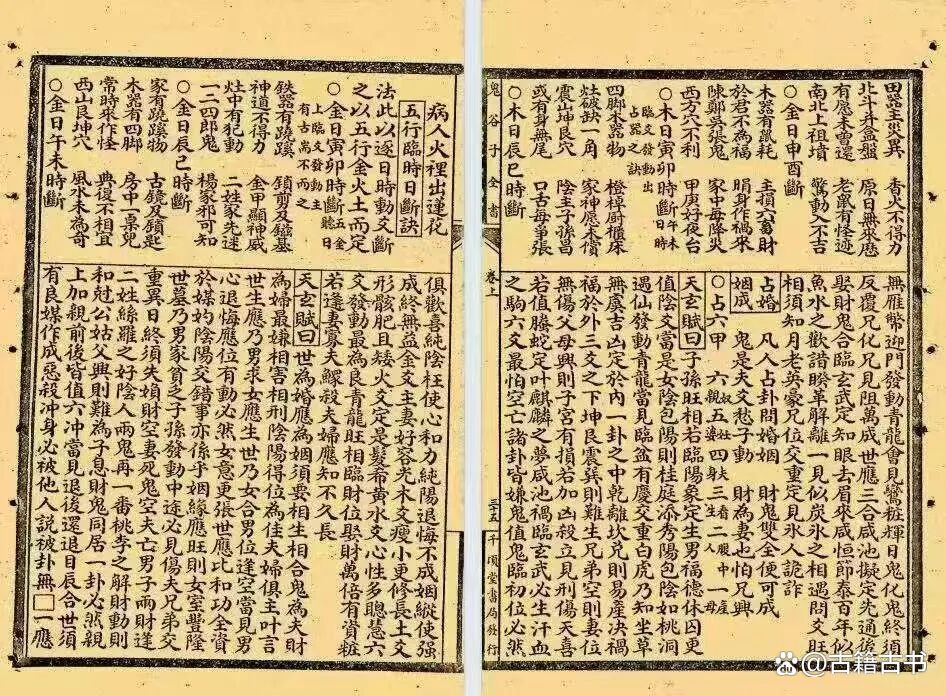 田器主災異　香火不得力
北斗并盆盤　原日無來歷
有愿未曾還　老鼠有怪迹
南北上祖墳　驚動入不吉
○金日申酉時斷
木器有鼠耗　主損六畜財
於君不為福　賜身作禍來
陳鄭吳張鬼　家中每降災
西方穴不利　甲庚好夜台
○木日寅卯時
臨爻發動出
占器之訣
四脚木器物　櫈棹厨櫃床
灶破缺一角　家神愿未償
震山坤艮穴　陰主子孫昌
或有身無尾　口舌每爭張
○木日辰巳時斷
無雁幣迎門發動青龍會見鸞粧輝日鬼化鬼終須
反覆兄化兄見阻萬成世應三合咸池擬定先通後
娶財鬼合臨玄武定知眼去眉來咸恒節泰百年似
魚水之歡諧睽革解離一見似炭氷之相遇問爻旺
相須知月老英豪兄位交重定見氷人詭詐
占婚　凡人占卦問婚姻　財鬼雙全便可成
姻成　鬼是夫爻愁子動　財為妻也怕兄興
○占六甲
天玄賦曰子孫旺相若臨陽象定生男福德休囚更
值陰爻當是女陰包陽則桂庭添秀陽包陰如桃洞
遇仙發動青龍當見臨盆有慶交重白虎乃知坐草
無虞吉凶定於內一卦之中乾離坎兌則易產決禍
福於外三爻之下坤艮震巽則難生兄弟空則妻位
無傷父母興則子宮有損若加凶殺立見刑傷天喜
若值螣蛇定叶麒麟之夢咸池禍臨玄武必生汗血
之駒六爻最怕空亡諸卦皆嫌鬼值鬼臨初位必然
鬼谷子全書　卷上　三十五　千頃堂書局發行
病人火裡出蓮花
五行臨時日斷訣
法此以逐日時動爻斷
之以五行金火土而定
○金日寅卯時斷
上臨爻發動主
鉄器有蹺蹊　鎖剪及鐮墓
神道不得力　金甲顯神威
灶中有犯動　二姓家先迷
一二四郎鬼　楊家邪可知
○金日辰巳時斷
家有蹺蹊物　古鏡及鎖匙
木器有四脚　房中一桌兒
常時來作怪　典後不相宜
西山艮坤穴　風水未為奇
○金日午未時斷
俱歡喜純陰枉使心和力純陽退悔不成姻縱使強
成終無益金爻主妻好容光木爻瘦小更修長土爻
形骸肥且矮火爻定是髮希黃水爻心性多聰慧六
爻發動最為良青龍旺相臨財位娶財萬倍有資粧
若逢妻寡夫鰥殺夫婦應知不久長
天玄賦曰世為婚應為姻須要相生相合鬼為夫財
為婦最嫌相害相刑陰陽得位為佳夫婦俱主叶言
世生應乃男求女應生世乃女合男位逢空當見男
心退悔應位有動必然女意更張世應比和功全資
於媒妁陰陽交錯事亦係乎姻緣應旺則女室豐隆
世墓乃男家貧乏子孫發動中途必見傷夫兄弟交
重異日終須失婦財空妻死鬼空夫亡男子兩財逢
二姓絲羅之好陰人兩鬼再一番桃李之解財動則
和尅公姑父興則難為子息財鬼同居一卦必然親
上加親前後皆值六冲當見退後還退日辰合世須
有良媒作成惡殺冲身必被他人說被卦無□一應
古籍古书